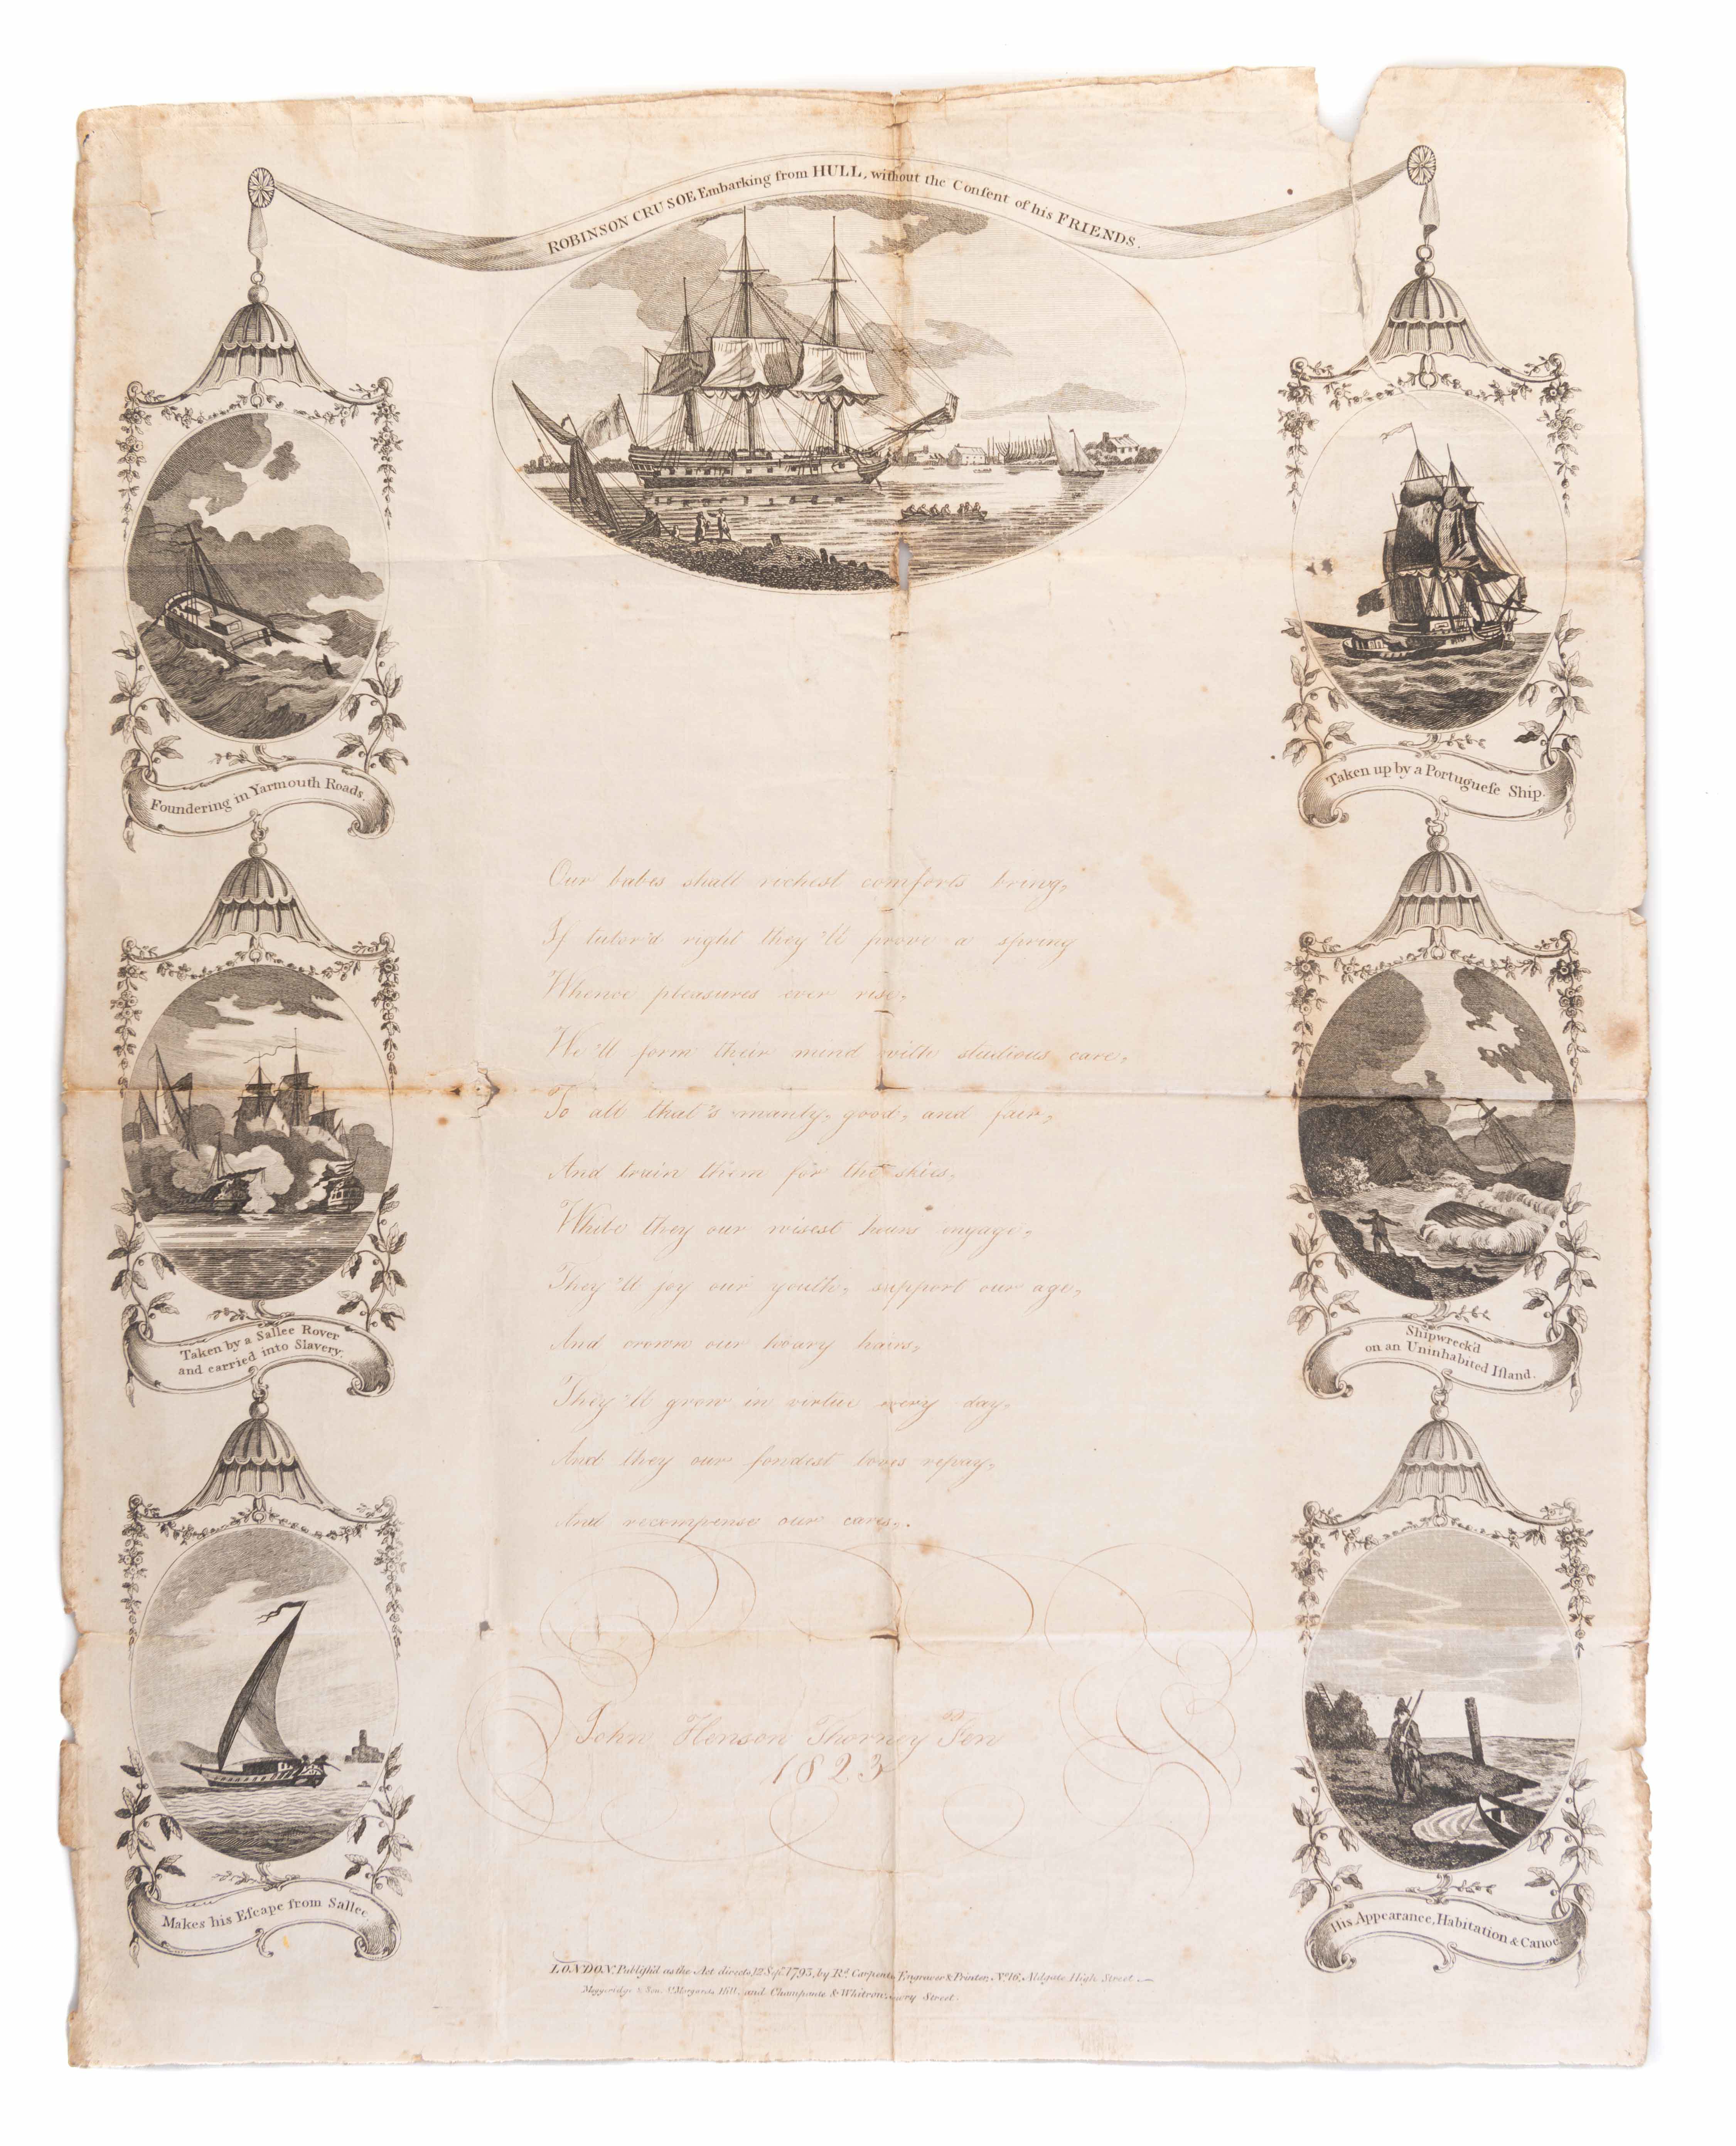 ROBINSON CRUSOE Embarking from HULL, without the Conſent of his FRIENDS.
Foundering in Yarmouth Roads.
Taken by a Sallee Rover
and carried into Slavery.
Makes his Eſcape from Sallee
Taken up by a Portugueſe Ship.
Shipwreck'd
on an Uninhabited Iſland.
His Appearance, Habitation & Canoe.
Our babes shall richest comforts bring,
If tutor'd right they'll prove a spring
Whence pleasures ever rise,
We'll form their mind with studious care,
To all that's manly, good, and fair,
And train them for the skies.
While they our wisest hours engage,
They'll joy our youth, support our age,
And crown our hoary hairs,
They'll grow in virtue every day,
And they our fondest loves repay,
And recompense our cares.
John Henson Thorney Fen
1823
LONDON. Publiſh'd as the Act directs, 12 Sepr. 1793, by Rd. Carpent Engraver & Printer, No. 16, Aldgate High Street.
Moggeridge & Son, St. Margarets Hill, and Champante & Whitrow, Street.